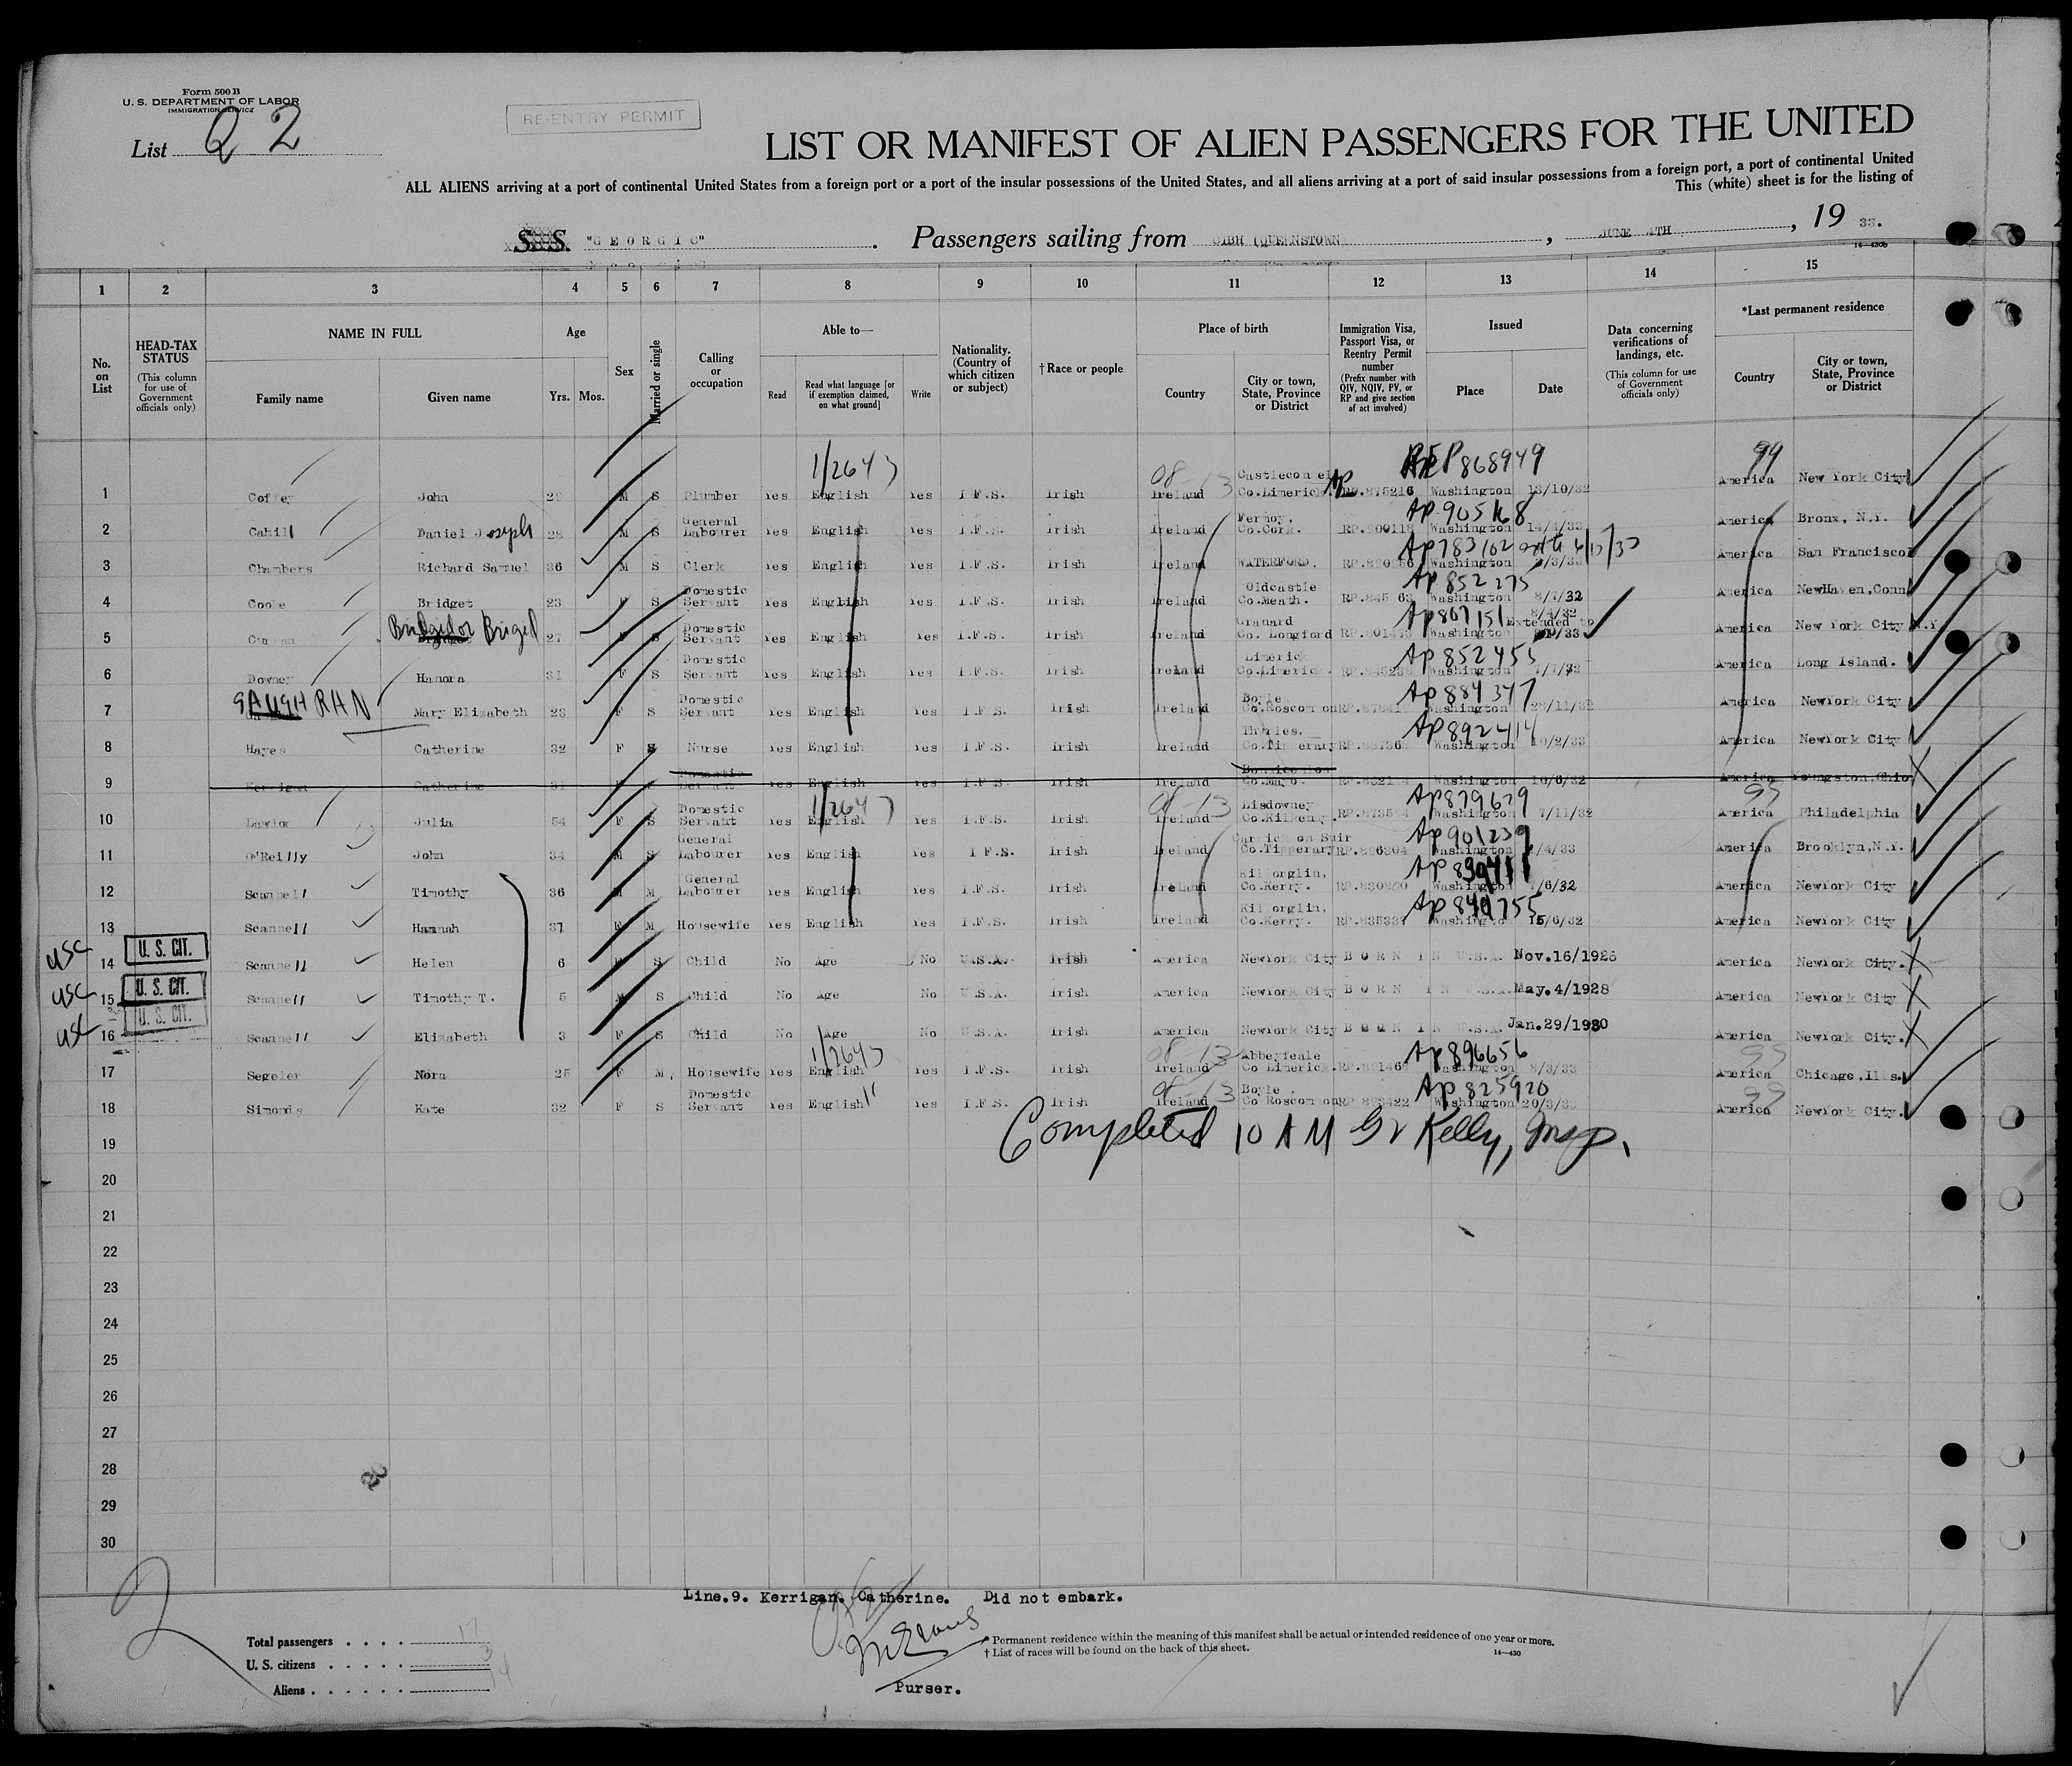 Form 500 B
U. S. DEPARTMENT OF LABOR
IMMIGRATION SERVICE
List Q 2
RE-ENTRY PERMIT
LIST OR MANIFEST OF ALIEN PASSENGERS FOR THE UNITED
ALL ALIENS arriving at a port of continental United States from a foreign port or a port of the insular possessions of the United States, and all aliens arriving at a port of said insular possessions from a foreign port, a port of continental United
This (white) sheet is for the listing of
S. S. "GEORGIC" . Passengers sailing from COBH (QUEENSTOWN) , JUNE 4TH , 19 33.
14—430b
1 2 3 4 5 6 7 8 9 10 11 12 13 14 15
No. on List
HEAD-TAX STATUS (This column for use of Government officials only)
NAME IN FULL
Family name Given name
Age
Yrs. Mos.
Sex
Married or single
Calling or occupation
Able to—
Read
Read what language [or if exemption claimed, on what ground]
Write
Nationality. (Country of which citizen or subject)
†Race or people
Place of birth
Country
City or town, State, Province or District
Immigration Visa, Passport Visa, or Reentry Permit number (Prefix number with QIV, NQIV, PV, or RP and give section of act involved)
Issued
Place Date
Data concerning verifications of landings, etc. (This column for use of Government officials only)
*Last permanent residence
Country
City or town, State, Province or District
1/2643 08-13 Castleconnel 868949 99
1 Coffey John M S Plumber Yes English Yes I.F.S. Irish Ireland Co.Limerick. RP.875216 Washington 13/10/32 America New York City
General Fermoy, AP 905168
2 Cahill Daniel Joseph 28 M S Labourer Yes English Yes I.F.S. Irish Ireland Co.Cork. Washington 14/4/33 America Bronx, N.Y.
Ap783102
3 Chambers Richard Samuel 36 M S Clerk Yes English Yes I.F.S. Irish Ireland WATERFORD. Washington America San Francisco
Domestic Oldcastle AP 852275
4 Bridget 23 F S Servant Yes English Yes I.F.S. Irish Ireland Co.Meath. Washington 8/7/32 America NewHaven,Conn
Bridgid or Brigid Domestic Granard Ap867151 8/4/32 Extended to
5 27 F S Servant Yes English Yes I.F.S. Irish Ireland Co. Longford Washington America New York City N.Y.
Domestic Limerick Ap852455
6 Downey Hanora 31 F S Servant Yes English Yes I.F.S. Irish Ireland Co.Limerick. Washington 7/7/32 America Long Island.
GAUGHRAN Domestic Boyle, Ap884347
7 Mary Elizabeth 23 F S Servant Yes English Yes I.F.S. Irish Ireland Co.Roscommon Washington America NewYork City
Thurles. Ap892414
8 Hayes Catherine 32 F S Nurse Yes English Yes I.F.S. Irish Ireland Co.Tipperary Washington 10/2/33 America NewYork City
Domestic
9 Kerrigan Catherine 31 F Servant Yes English Yes I.F.S. Irish Ireland Co.Mayo. Washington 10/6/32 America Youngston,Ohio
Domestic 1/2643 08-13 Lisdowney Ap879629 99
10 Lawlor Julia 54 F S Servant Yes English Yes I.F.S. Irish Ireland Co.Kilkenny. Washington 7/11/32 America Philadelphia
General Carrick on Suir Ap901239
11 O'Reilly John 34 M S Labourer Yes English Yes I F.S. Irish Ireland Co.Tipperary Washington America Brooklyn,N.Y.
General Killorglin,
12 Scannell Timothy 36 M M Labourer Yes English Yes I.F.S. Irish Ireland Co.Kerry. Washington America NewYork City
Killorglin,
13 Scannell Hannah 37 F M Housewife Yes English Yes I.F.S. Irish Ireland Co.Kerry. Washington 15/6/32 America NewYork City
USC U. S. CIT. 14 Scannell Helen 6 F S Child No Age No U.S.A. Irish America NewYork City BORN IN U.S.A. Nov.16/1926 America NewYork City.
USC U. S. CIT. 15 Scannell Timothy T. 5 M S Child No Age No U.S.A. Irish America NewYork City BORN IN U.S.A. May.4/1928 America NewYork City
USC U. S. CIT. 16 Scannell Elizabeth 3 F S Child No Age No U.S.A. Irish America NewYork City BORN IN U.S.A. Jan.29/1930 America NewYork City.
1/2643 08-13 Abbeyfeale Ap896656 99
17 Segeler Nora 25 F M. Housewife Yes English Yes I.F.S. Irish Ireland Co Limerick. Washington 8/3/33 America Chicago,Ills.
Domestic 08-13 Boyle. Ap825920 99
18 Simonds Kate 32 F S Servant Yes English Yes I.F.S. Irish Ireland Co Roscommon Washington America NewYork City.
Completed 10 AM Kelly, Insp.
19
20
21
22
23
24
25
26
27
28
29
30
Line.9. Kerrigan. Catherine. Did not embark.
Total passengers 17
U. S. citizens 3
Aliens 14
* Permanent residence within the meaning of this manifest shall be actual or intended residence of one year or more.
† List of races will be found on the back of this sheet.
14—430
Purser.
2